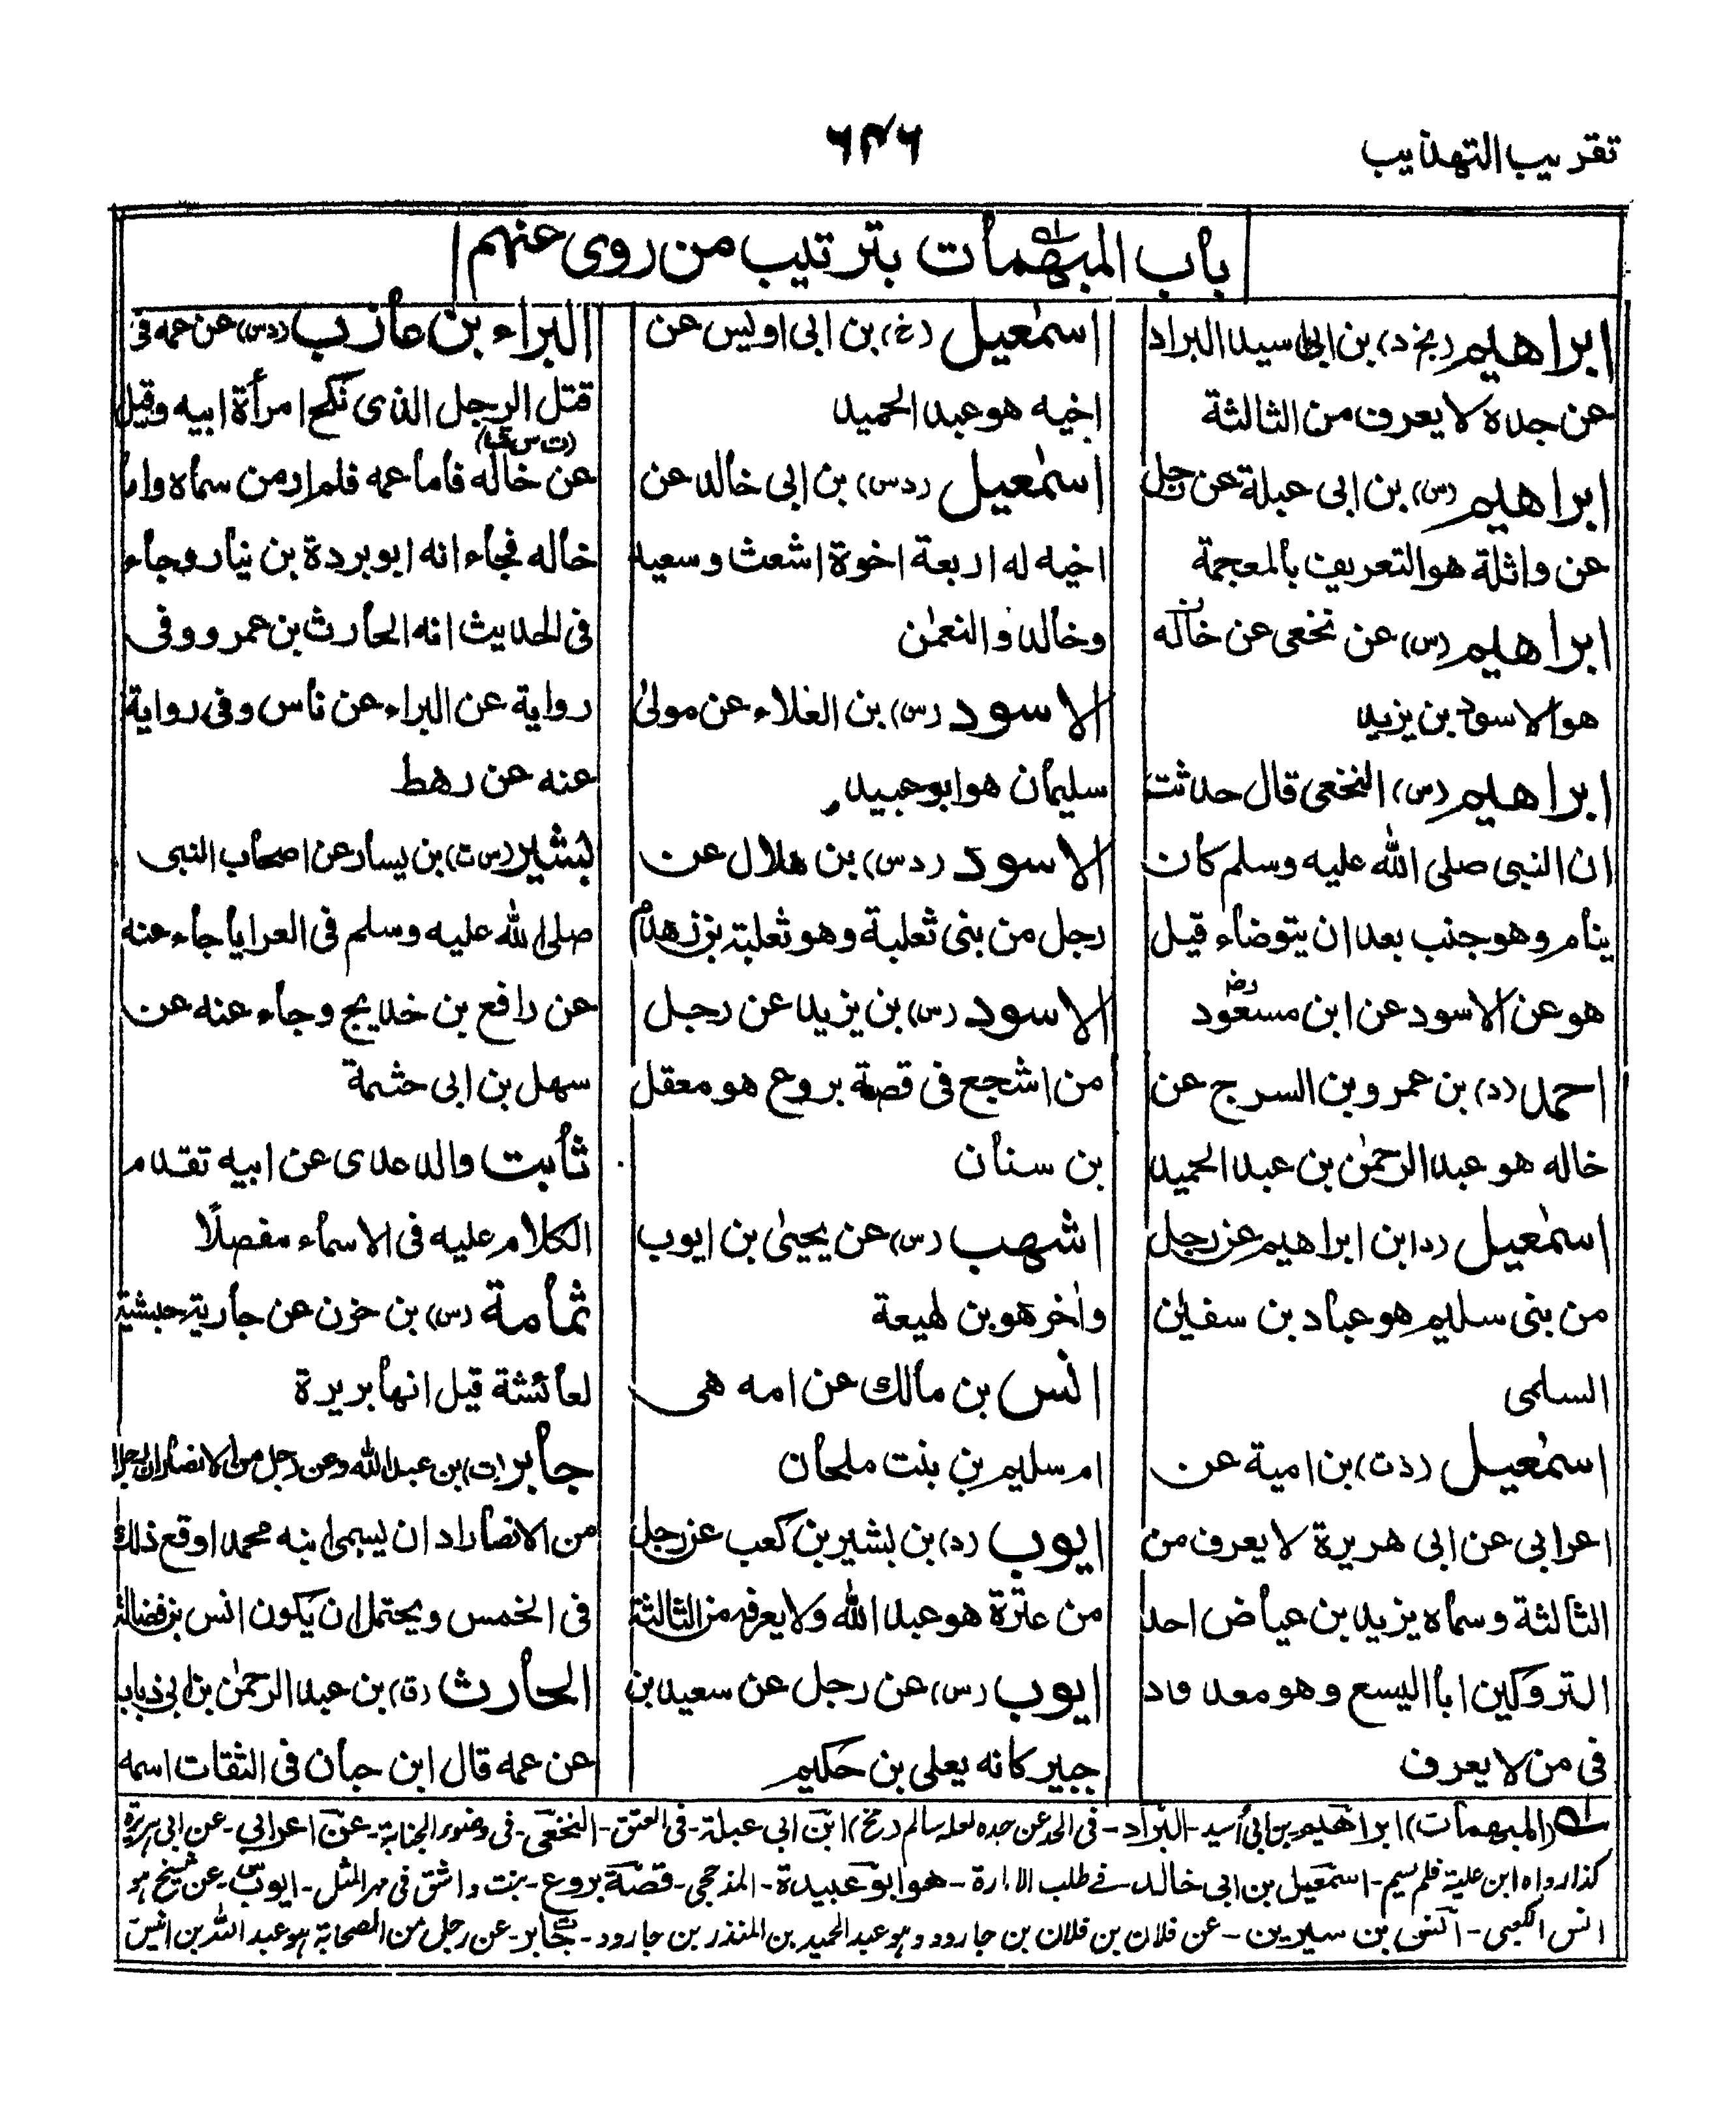 تقريب التهذيب
٦٣٦
باب المبهمات بترتيب من روى عنهم
ابراهيم (بخ د) بن ابي اسيد البراد
عن جده لا يعرف من الثالثة
ابراهيم (س) بن ابي عبلة عن رجل
عن واثلة هو التعريف بالمعجمة
ابراهيم (س) عن نخعى عن خاله
هو الاسود بن يزيد
ابراهيم (س) النخعى قال حدثت
ان النبى صلى الله عليه وسلم كان
ينام وهو جنب بعد ان يتوضاء قيل
هو عن الاسود عن ابن مسعود رض
احمد (د) بن عمرو بن السرج عن
خاله هو عبد الرحمٰن بن عبد الحميد
اسمٰعيل (د) ابن ابراهيم عن رجل
من بنى سليم هو عباد بن سفيٰن
السلمى
اسمٰعيل (د ت) بن امية عن
اعرابى عن ابى هريرة لا يعرف من
الثالثة وسماه يزيد بن عياض احد
التروكين ابا اليسع وهو معد
فى من لا يعرف
اسمٰعيل (خ) بن ابى اويس عن
اخيه هو عبد الحميد
اسمٰعيل (د س) بن ابى خالد عن
اخيه له اربعة اخوة اشعث وسعيد
وخالد والنعمٰن
الاسود (س) بن العلاء عن مولى
سليمان هو ابو عبيد
الاسود (د س) بن هلال عن
رجل من بنى ثعلبة وهو ثعلبة بن زهدم
الاسود (س) بن يزيد عن رجل
من اشجع فى قصة بروع هو معقل
بن سنان
اشهب (س) عن يحيىٰ بن ايوب
واٰخر هو بن لهيعة
انس بن مالك عن امه هى
ام سليم بن بنت ملحان
ايوب (د) بن بشير بن كعب عن رجل
من عنزة هو عبد الله ولا يعرف من الثالثة
ايوب (س) عن رجل عن سعيد بن
جبير كانه يعلى بن حكيم
البراء بن عازب (د س) عن عمه فى
قتل الرجل الذى نكح امرأة ابيه وقيل
عن خاله (ت س ق) فاما عمه فلم ار من سماه واما
خاله فجاء انه ابو بردة بن نيار وجاء
فى الحديث انه الحارث بن عمرو وفى
رواية عن البراء عن ناس وفى رواية
عنه عن رهط
بشير (س ت) بن يسار عن اصحاب النبى
صلى الله عليه وسلم فى العرايا جاء عنه
عن رافع بن خديج وجاء عنه عن
سهل بن ابى حثمة
ثابت والد عدى عن ابيه تقدم
الكلام عليه فى الاسماء مفصلًا
ثمامة (س) بن حزن عن جارية حبشية
لعائشة قيل انها بريرة
جابر (ت) بن عبد الله وعن رجل من الانصار ان رجلا
من الانصار اراد ان يسمى ابنه محمدا وقع ذلك
فى الخمس ويحتمل ان يكون انس بن فضالة
الحارث (ق) بن عبد الرحمٰن بن ابى ذباب
عن عمه قال ابن حبان فى الثقات اسمه
(المبهمات) ابراهيم بن ابى أسيد - البراد - فى الحد عن جده لعله سالم (بخ) ابن ابى عبلة - فى العتق - النخعى - فى وضوء الجنابة - عن اعرابي - عن ابى هريرة
كذا رواه ابن علية فلم يسم - اسمٰعيل بن ابى خالد - فے طلب الامارة - هو ابو عبيدة - المذحجى - قصة بروع - بنت واشق فى مهر المثل - ايوب - عن شيخ هو
انس الكعبى - انس بن سيرين - عن فلان بن فلان بن جارود وهو عبد الحميد بن المنذر بن جارود - جابر - عن رجل من الصحابة هو عبد الله بن انيس